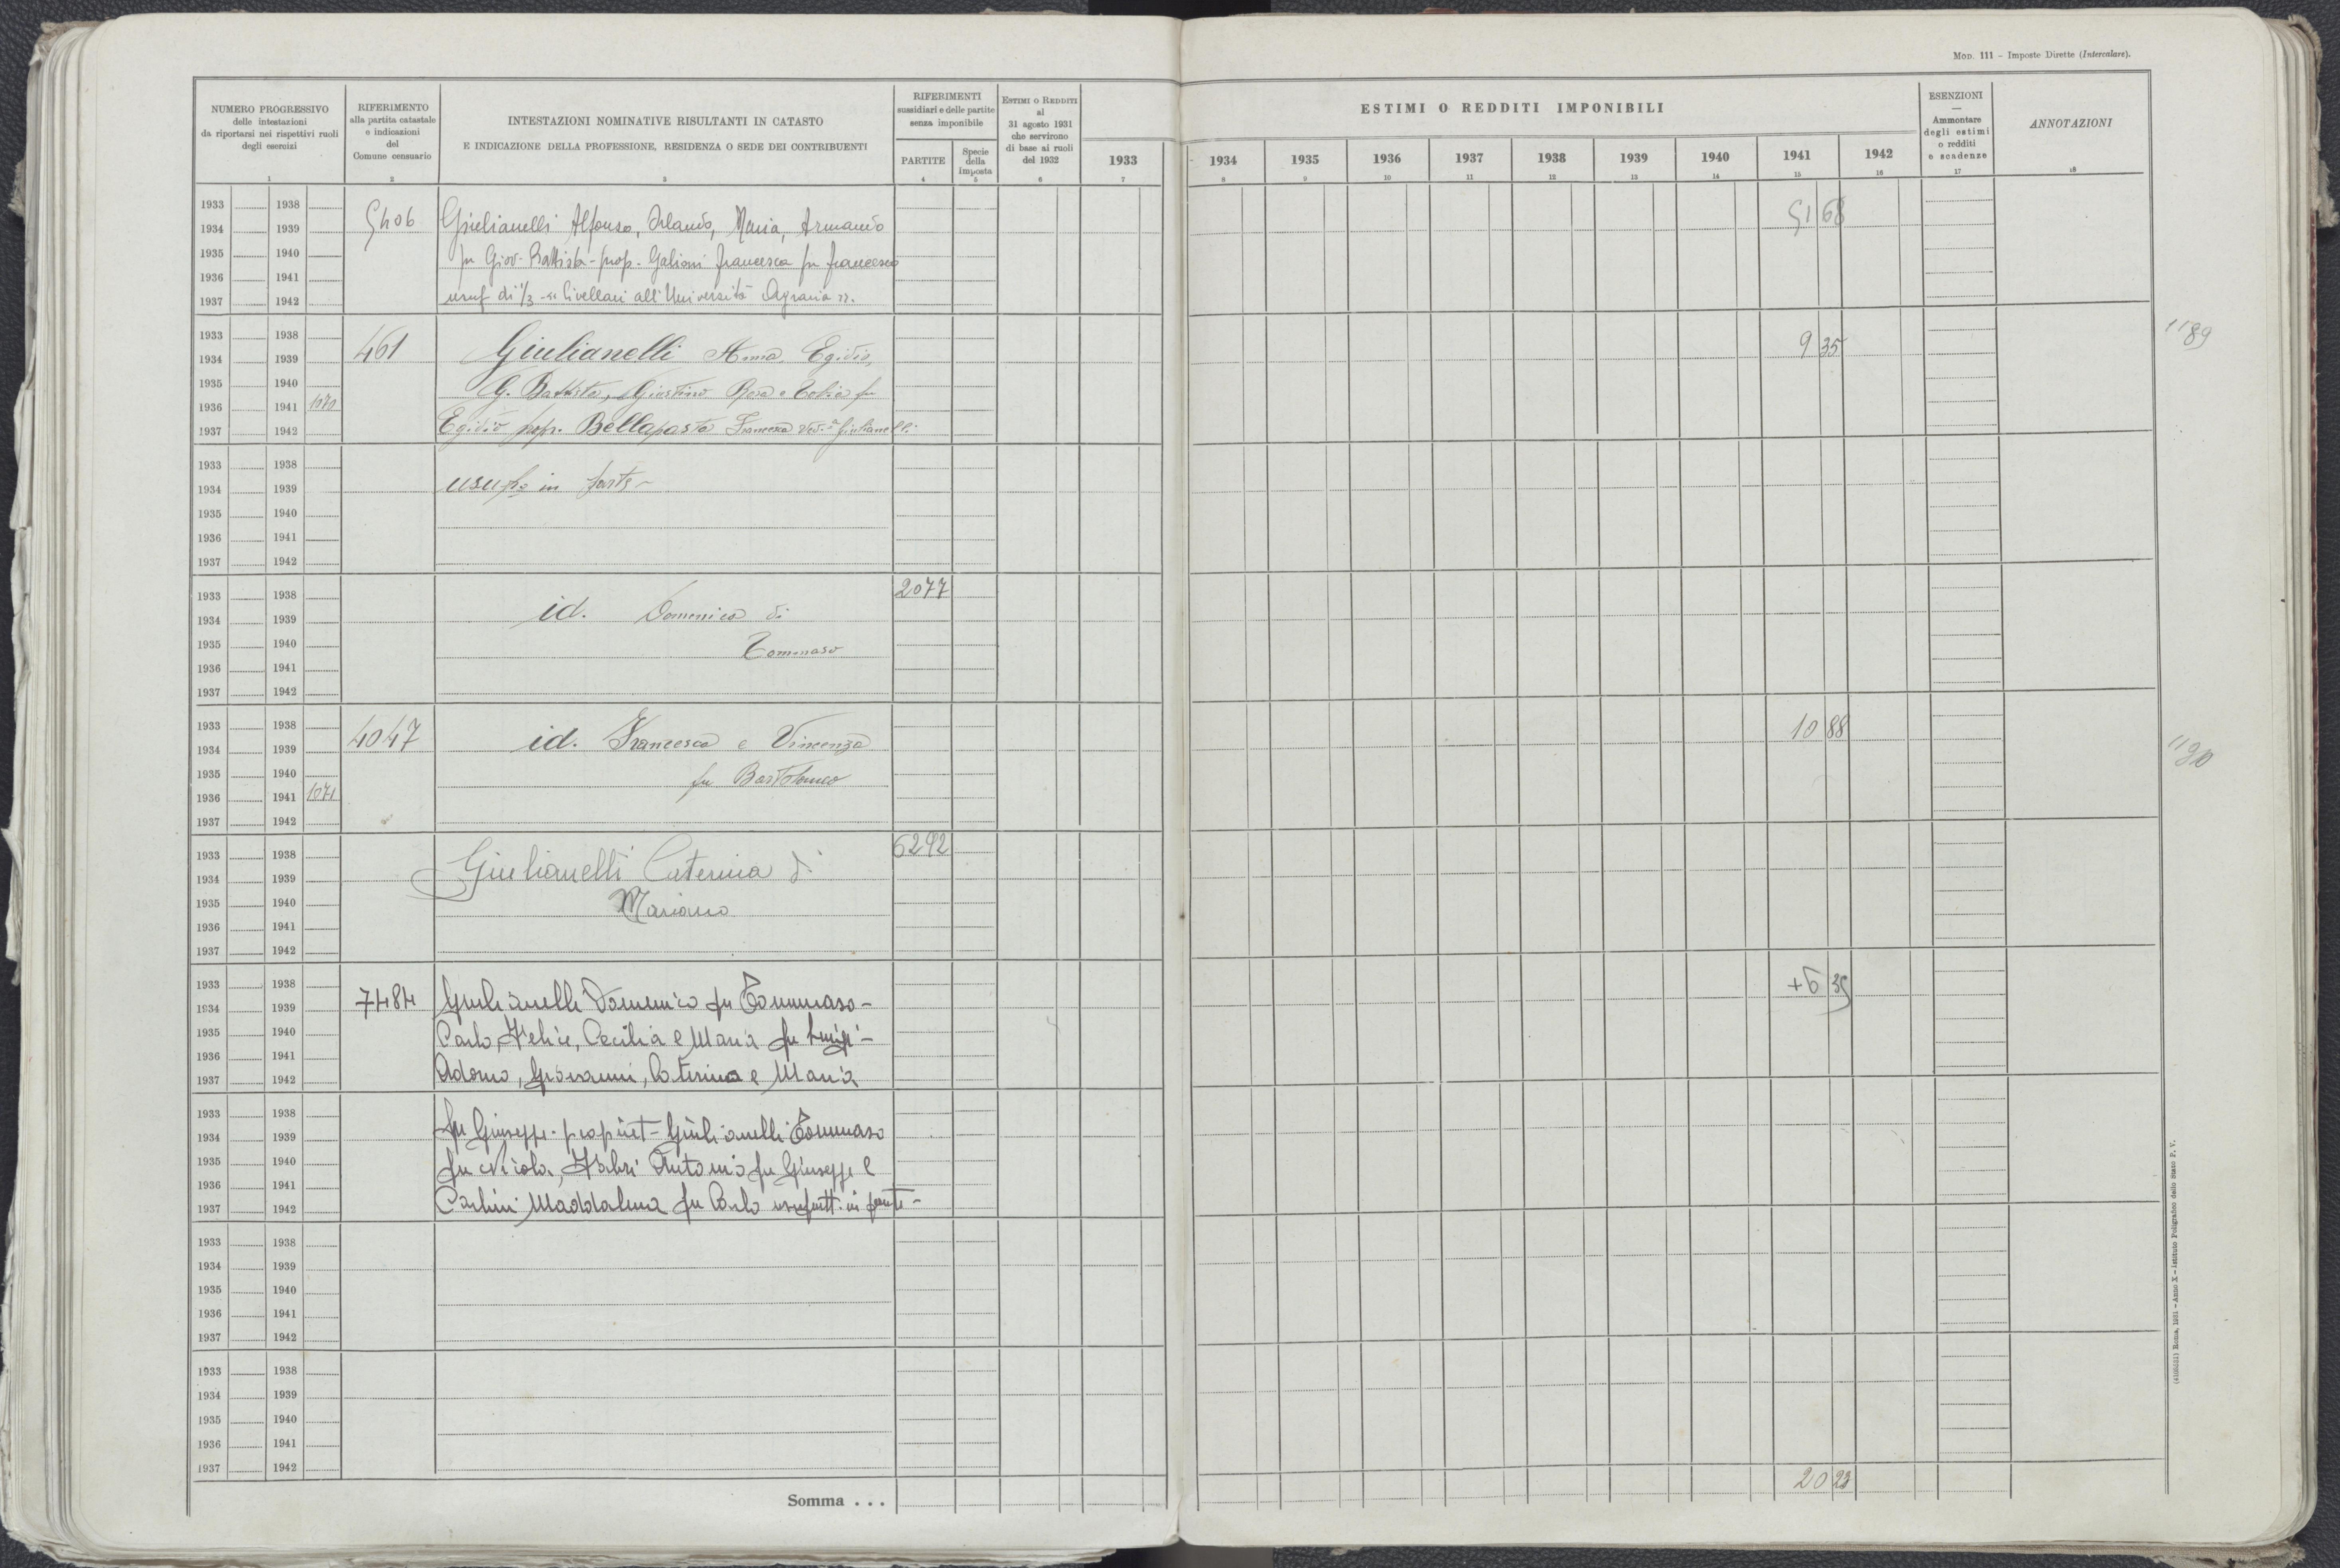 Mod. 111 - Imposte Dirette (Intercalare).
NUMERO PROGRESSIVO
delle intestazioni
da riportarsi nei rispettivi ruoli
degli esercizi
1
RIFERIMENTO
alla partita catastale
e indicazioni
del
Comune censuario
2
INTESTAZIONI NOMINATIVE RISULTANTI IN CATASTO
E INDICAZIONE DELLA PROFESSIONE, RESIDENZA O SEDE DEI CONTRIBUENTI
3
RIFERIMENTI
sussidiari e delle partite
senza imponibile
PARTITE
4
Specie
della
Imposta
5
ESTIMI O REDDITI
al
31 agosto 1931
che servirono
di base ai ruoli
del 1932
6
ESTIMI O REDDITI IMPONIBILI
1933 1934 1935 1936 1937 1938 1939 1940 1941 1942
7 8 9 10 11 12 13 14 15 16
ESENZIONI
—
Ammontare
degli estimi
o redditi
e scadenze
17
ANNOTAZIONI
18
1933 1938
1934 1939
1935 1940
1936 1941
1937 1942
5406
Giulianelli Alfonso, Orlando, Maria, Armando
fu Giov-Battista-prop. Galioni francesca fu francesco
usuf di 1/3 - « livellari all'Università Agraria ».
51 68
1933 1938
1934 1939
1935 1940
1936 1941 1070
1937 1942
461
Giulianelli Anna Egidio,
G. Battista, Giustino Rosa e Tobia fu
Egidio prop. Bellapasta Francesca ved.a Giulianelli
9 35
1189
1933 1938
1934 1939
1935 1940
1936 1941
1937 1942
in parte -
1933 1938
1934 1939
1935 1940
1936 1941
1937 1942
id. Domenico di
Tommaso
2077
1933 1938
1934 1939
1935 1940
1936 1941 1071
1937 1942
4047
id. Francesca e Vincenza
fu Bartolomeo
10 88
1190
1933 1938
1934 1939
1935 1940
1936 1941
1937 1942
Giulianelli Caterina di
Mariano
6292
1933 1938
1934 1939
1935 1940
1936 1941
1937 1942
7484
Giulianelli Domenico fu Tommaso -
Carlo, Felice, Cecilia e Maria fu Luigi -
Adorno, Giovanni, Caterina e Maria
+6 35
1933 1938
1934 1939
1935 1940
1936 1941
1937 1942
fu Giuseppe - propriet - Giulianelli Tommaso
fu Nicola, Fabri Antonia fu Giuseppe e
Carlini Maddalena fu Carlo usufrutt. in parte -
1933 1938
1934 1939
1935 1940
1936 1941
1937 1942
1933 1938
1934 1939
1935 1940
1936 1941
1937 1942
Somma . . .
20 23
Roma, 1931 - Anno X - Istituto Poligrafico dello Stato P. V.